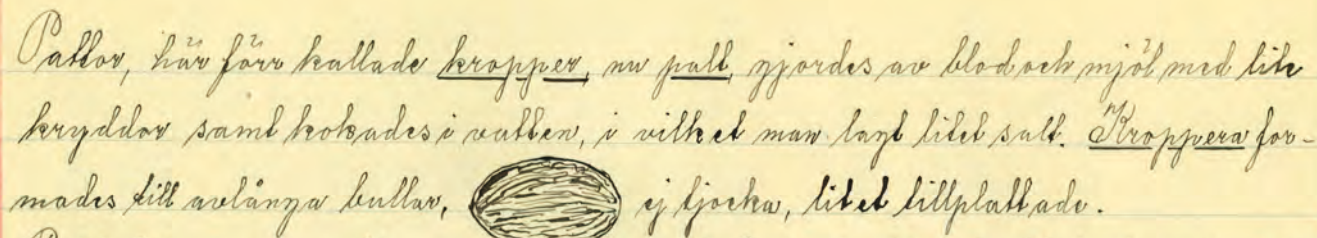 Paltor, här förr kallade kropper, nu palt, gjordes av blod och mjöl med lite
kryddor samt kokades i vatten, i vilket man lagt litet salt. Kroppera for-
mades till avlånga bullar, ej tjocka, litet tillplattade.